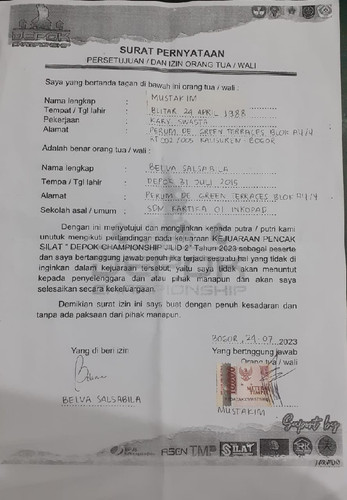 DEPOK
CHAMPIONSHIP
SURAT PERNYATAAN
PERSETUJUAN / DAN IZIN ORANG TUA / WALI
Saya yang bertanda tangan di bawah ini orang tua / wali :
Nama lengkap : MUSTAKIM
Tempat / Tgl lahir : BLITAR 24 APRIL 1988
Pekerjaan : KARY. SWASTA
Alamat : PERUM. DE. GREEN TERRACES BLOK A4/4
RT 002/005 KALISUREN - BOGOR
Adalah benar orang tua / wali :
Nama lengkap : BELVA SALSABILA
Tempa / Tgl lahir : DEPOK 31 JULI 2015
Alamat : PERUM DE GREEN TERRACES BLOK A4/4
Sekolah asal / umum : SDN KARTIKA 01 INKOPAD
Dengan ini menyetujui dan mengijinkan kepada putra / putri kami
unutuk mengikuti pertandingan pada kejuaraan KEJUARAAN PENCAK
SILAT " DEPOK CHAMPIONSHIP JLID 2" Tahun 2023 sebagai peserta
dan saya bertanggung jawab penuh jika terjadi sesuatu hal yang tidak di
inginkan dalam kejuaraan tersebut, yaitu saya tidak akan menuntut
kepada penyelenggara dan atau pihak manapun dan akan saya
selesaikan secara kekeluargaan.
Demikian surat izin ini saya buat dengan penuh kesadaran dan
tanpa ada paksaan dari pihak manapun.
BOGOR, 29-07 2023
Yang di beri izin
Yang bertanggung jawab
Orang tua / wali
METERAI
TEMPEL
BELVA SALSABILA
MUSTAKIM
Suport by
TMP SILAT